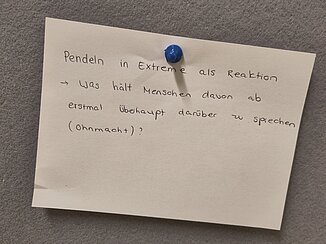 Pendeln in Extreme als Reaktion
→ Was hält Menschen davon ab
erstmal überhaupt darüber zu sprechen
(Ohnmacht)?